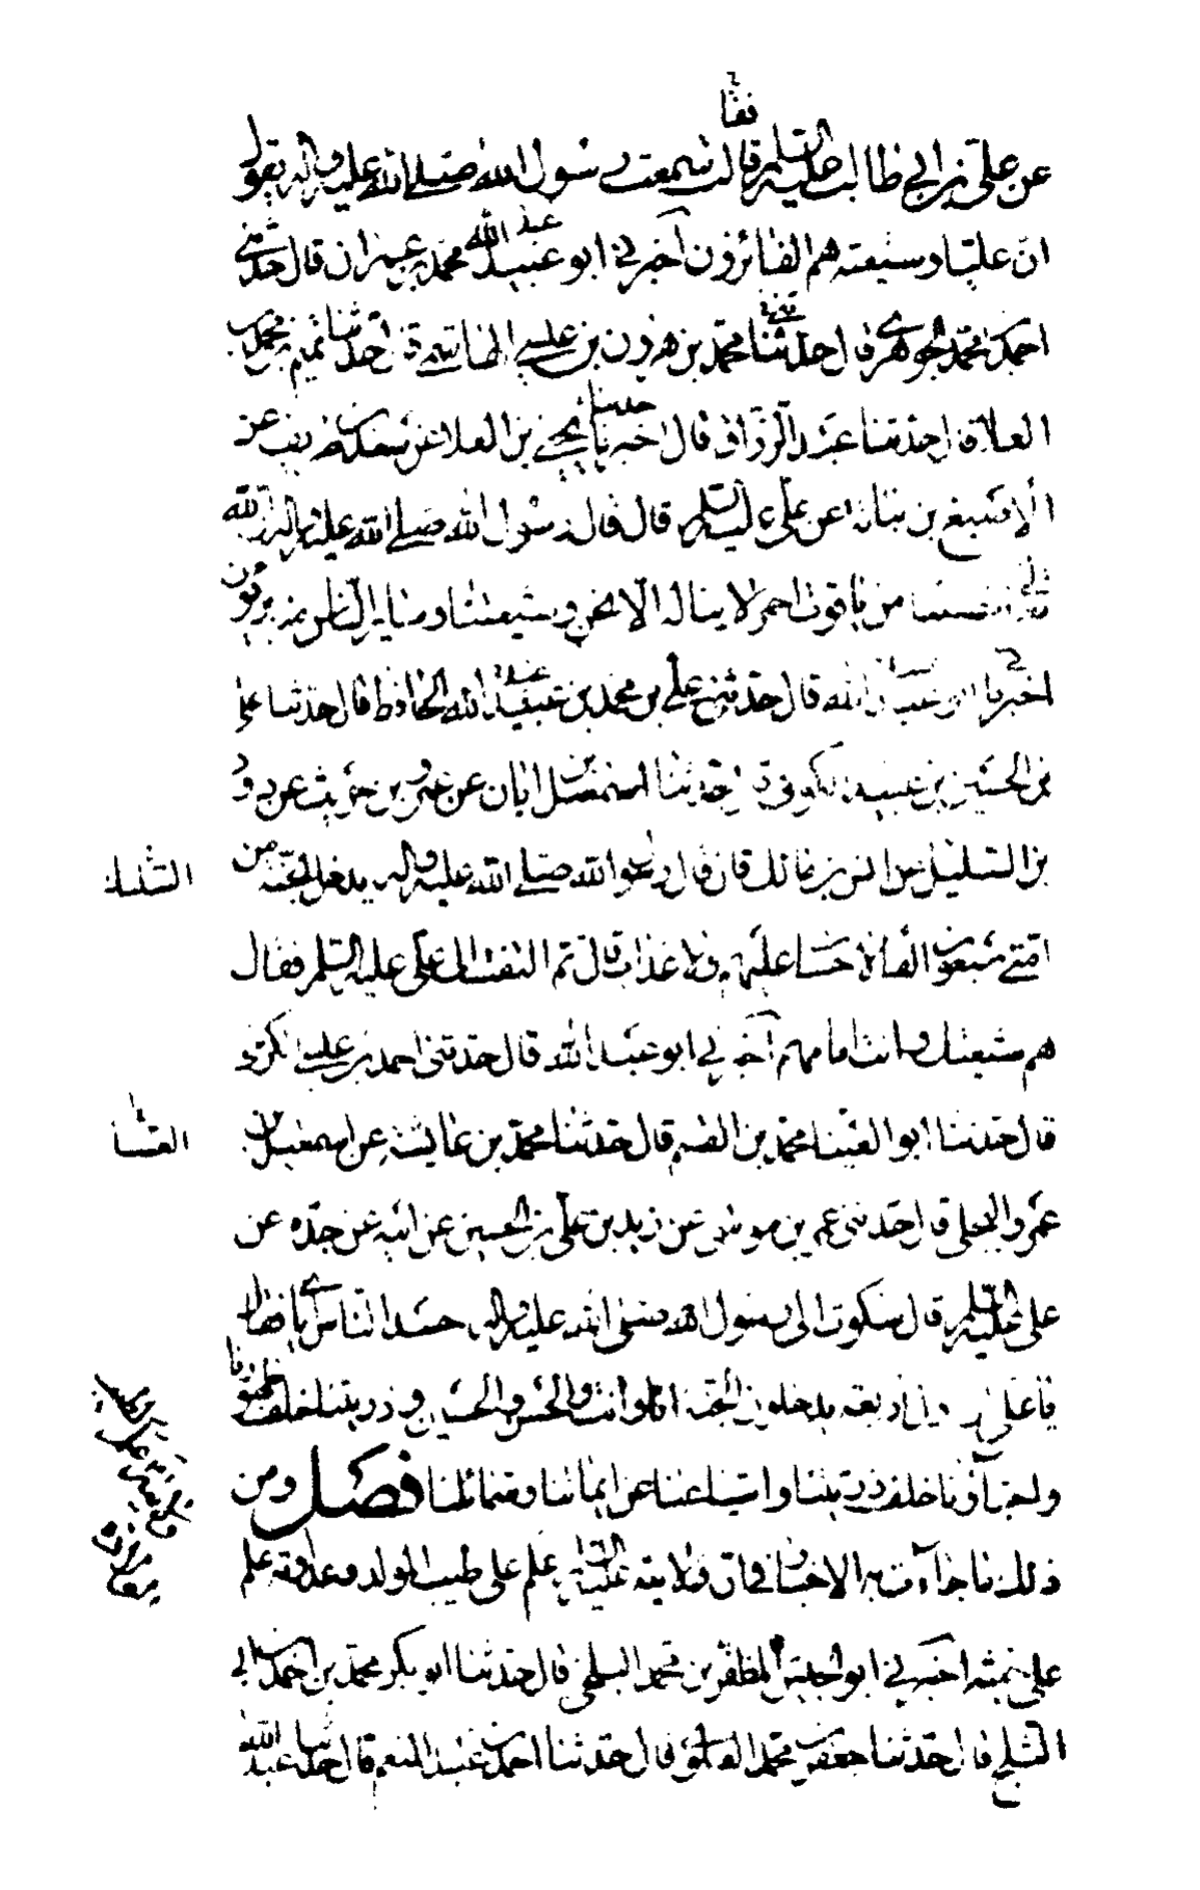 فقا
عن علي بن ابي طالب عليه السلم قالت سمعت رسول الله صلى الله عليه وآله يقول
ان عليا وشيعته هم الفائزون اخبرني ابو عبيد الله محمد بن عمران قال حدثني
احمد بن محمد الجوهري قال حدثنا محمد بن هرون بن عيسى الهاشمي قال حدثنا تميم بن محمد بن
العلا قال حدثنا عبد الرزاق قال اخبرنا يحيى بن العلا عن سعد بن طريف عن
الاصبغ بن نباته عن علي عليه السلم قال قال رسول الله صلى الله عليه وآله ان لله
تعالى قضيبا من ياقوت احمر لا يناله الا نحن وشيعتنا وساير الناس منه بريئون
اخبرنا ابو عبيد الله قال حدثني علي بن محمد بن عبيد الله الحافظ قال حدثنا علي
بن الحسين بن عبيد الكوفي قال حدثنا اسمعيل بن ابان عن عمرو بن حريث عن داود
بن السليل عن انس بن مالك قال قال رسول الله صلى الله عليه وآله يدخل الجنة من
السليك
امتي سبعون الفا لا حساب عليهم ولا عذاب قال ثم التفت الى علي عليه السلم فقال
هم شيعتك وانت امامهم اخبرني ابو عبد الله قال حدثني احمد بن عيسى الكرخي
قال حدثنا ابو العينا محمد بن القسم قال حدثنا محمد بن عايشة عن اسمعيل بن
العينا
عمرو البجلي قال حدثني عمر بن موسى عن زيد بن علي بن الحسين عن ابيه عن جده عن
علي عليه السلم قال شكوت الى رسول الله صلى الله عليه وآله حسد الناس اياي فقال
يا علي ان اول اربعة يدخلون الجنة انا وانت والحسن والحسين وذريتنا خلف ظهورنا
واحباؤنا خلف ذريتنا واشياعنا عن ايماننا وشمائلنا فصل ومن
ذلك ما جاءت به الاخبار في ان ولايته عليه السلم علم على طيب المولد وعداوته علم
على خبثه اخبرني ابو الجيش المظفر بن محمد البلخي قال حدثنا ابو بكر محمد بن احمد بن ابي
الثلج قال حدثنا جعفر بن محمد العلوي قال حدثنا احمد بن عبد المنعم قال حدثنا عبد الله